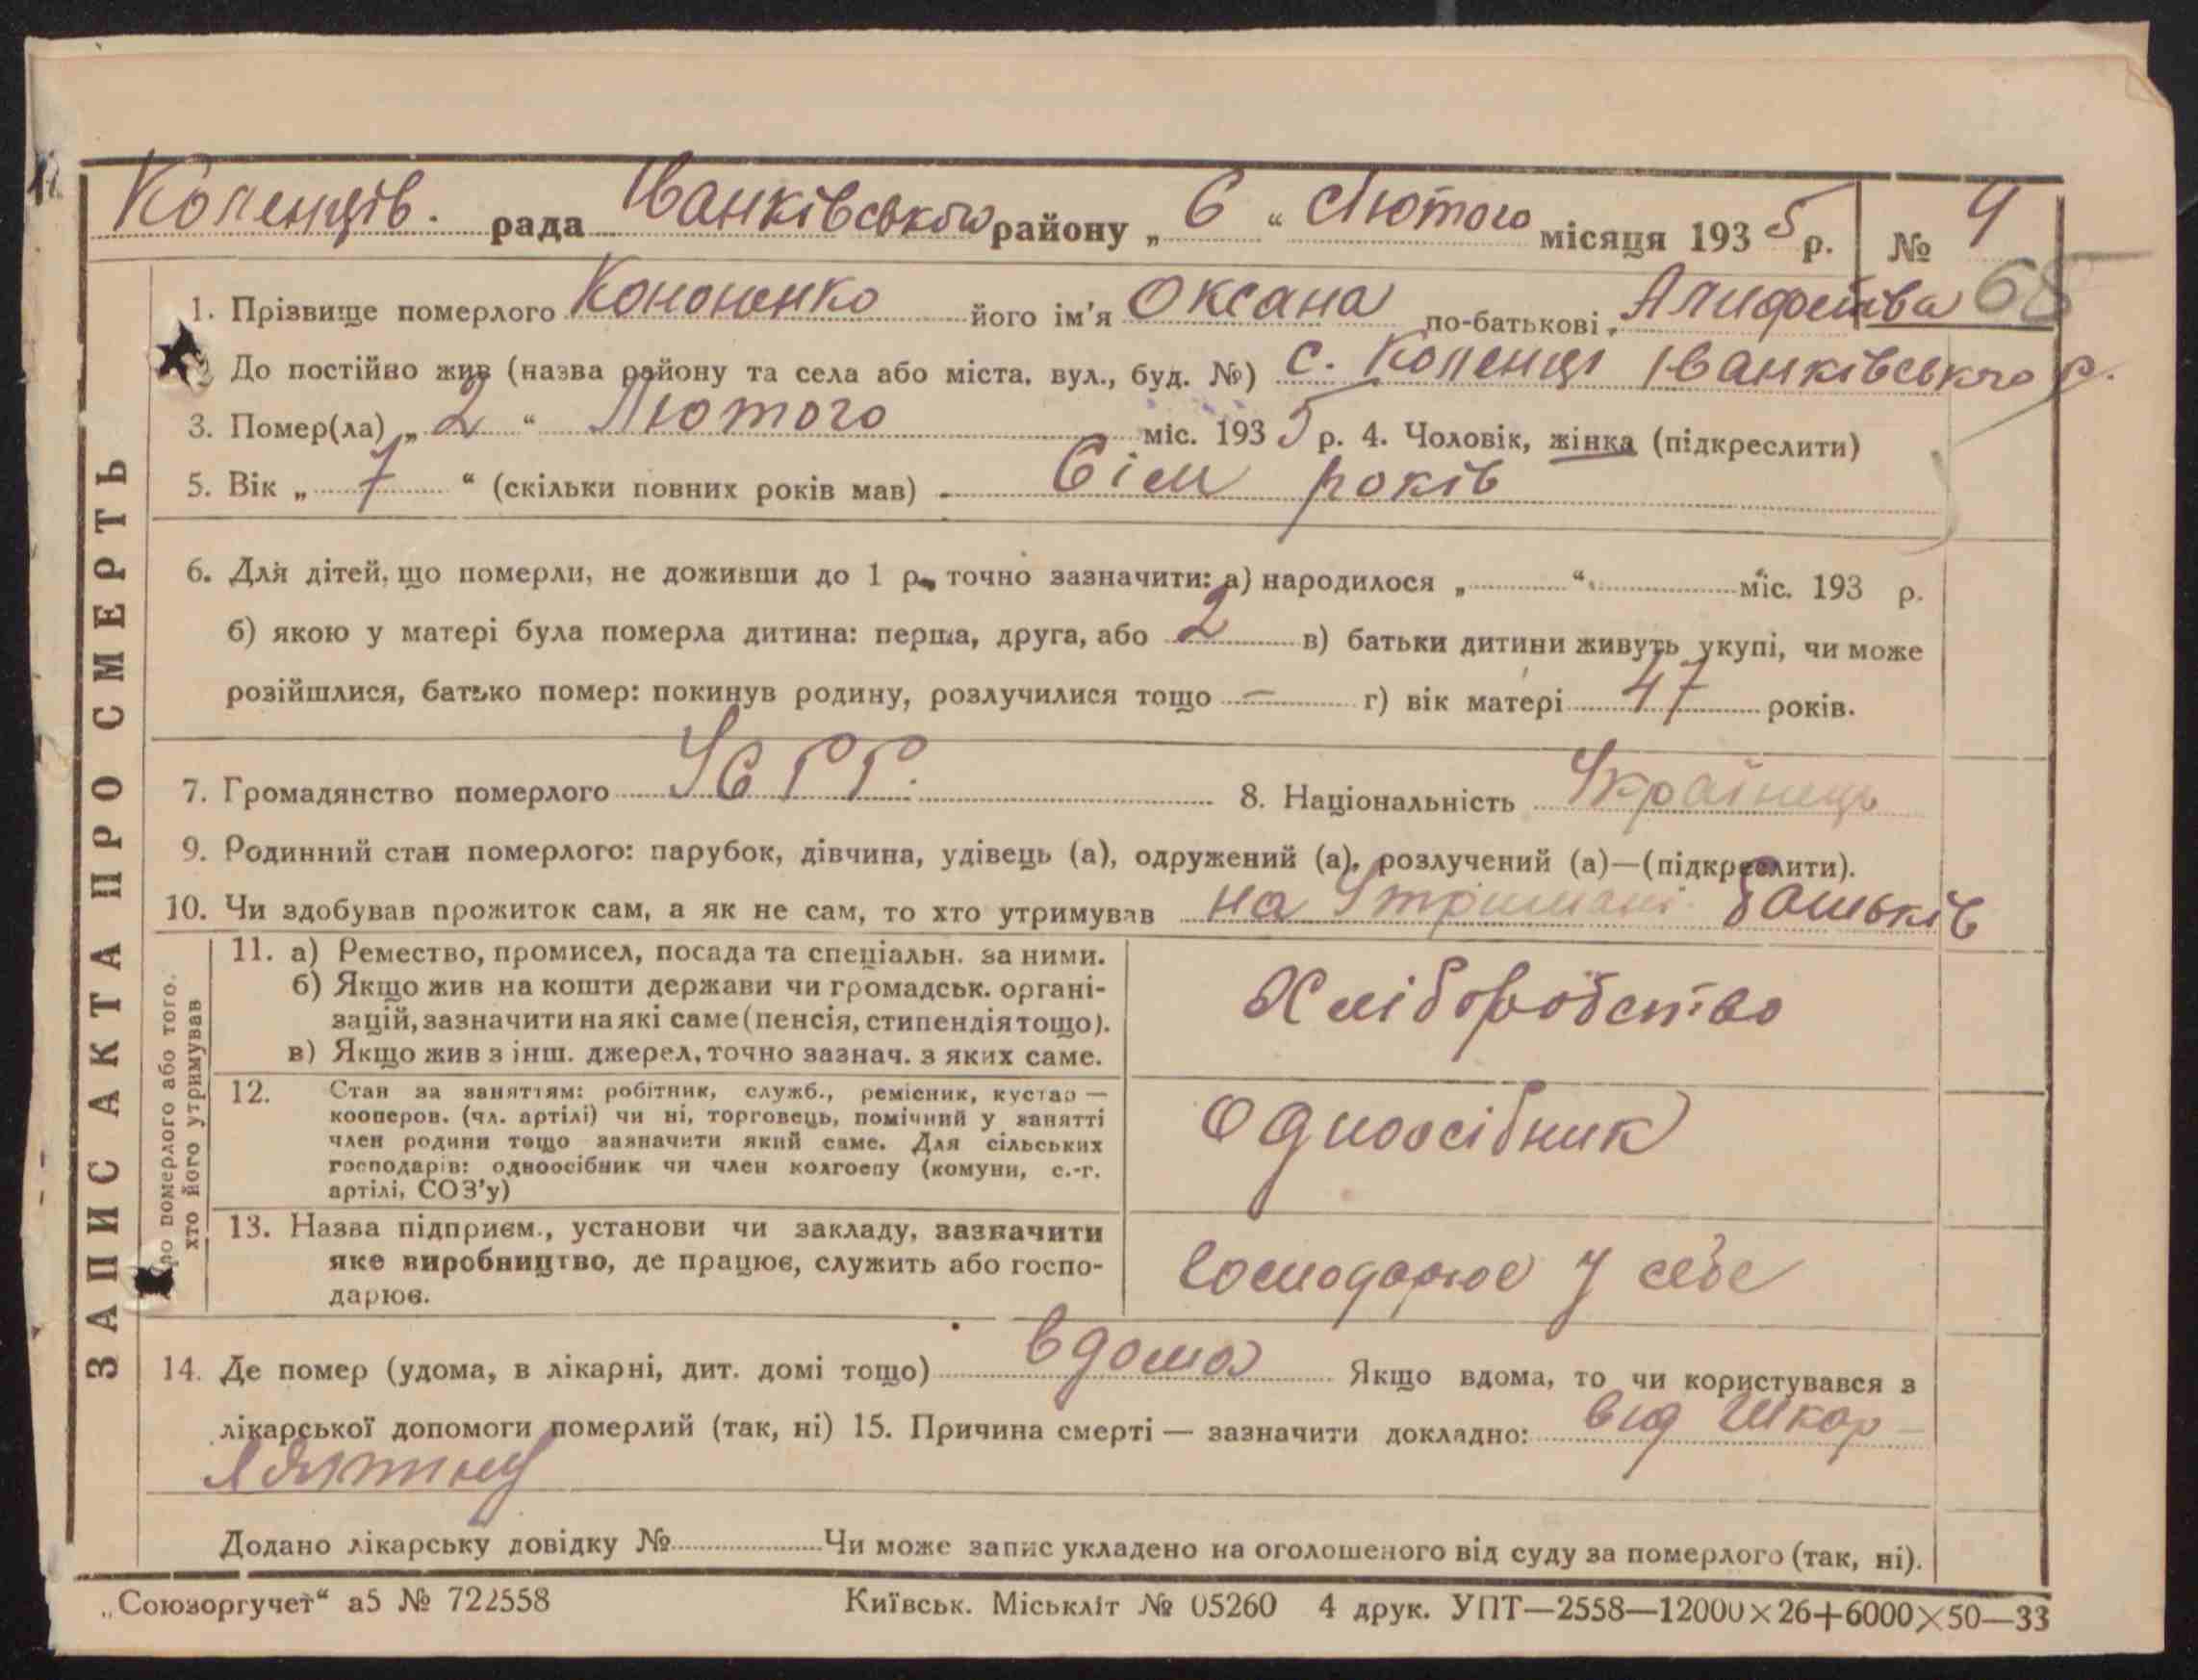 Копенців. рада Іванківського району „ 6 “ Лютого місяця 193 5 р. № 9
1. Прізвище померлого Кононенко його ім'я Оксана по-батькові 68
До постійно жив (назва району та села або міста, вул., буд. №) с. Копенці Іванківського р.
3. Помер(ла) „ 2 “ Лютого міс. 193 5 р. 4. Чоловік, жінка (підкреслити)
5. Вік „ 7 “ (скільки повних років мав) Сім років
6. Для дітей, що померли, не доживши до 1 р. точно зазначити: а) народилося „ “ міс. 193 р.
б) якою у матері була померла дитина: перша, друга, або 2 в) батьки дитини живуть укупі, чи може
розійшлися, батько помер: покинув родину, розлучилися тощо — г) вік матері 47 років.
7. Громадянство померлого УСРР. 8. Національність Українець
9. Родинний стан померлого: парубок, дівчина, удівець (а), одружений (а), розлучений (а)—(підкреслити).
10. Чи здобував прожиток сам, а як не сам, то хто утримував на Утримані батьків
11. а) Ремество, промисел, посада та спеціальн. за ними.
б) Якщо жив на кошти держави чи громадськ. органі-
зацій, зазначити на які саме (пенсія, стипендія тощо).
в) Якщо жив з інш. джерел, точно зазнач. з яких саме.
Хліборобство
12. Стан за заняттям: робітник, служб., ремісник, кустар —
кооперов. (чл. артілі) чи ні, торговець, помічний у занятті
член родини тощо зазначити який саме. Для сільських
господарів: одноосібник чи член колгоспу (комуни, с.-г.
артілі, СОЗ'у)
Одноосібник
13. Назва підприєм., установи чи закладу, зазначити
яке виробництво, де працює, служить або госпо-
дарює.
Господарює у себе
14. Де помер (удома, в лікарні, дит. домі тощо) вдома Якщо вдома, то чи користувався з
лікарської допомоги померлий (так, ні) 15. Причина смерті — зазначити докладно: від Шкар-
лятини
Додано лікарську довідку № Чи може запис укладено на оголошеного від суду за померлого (так, ні).
„Союзоргучет“ а5 № 722558 Київськ. Міськліт № 05260 4 друк. УПТ—2558—12000×26+6000×50—33
ЗАПИС АКТА ПРО СМЕРТЬ
Про померлого або того,
хто його утримував